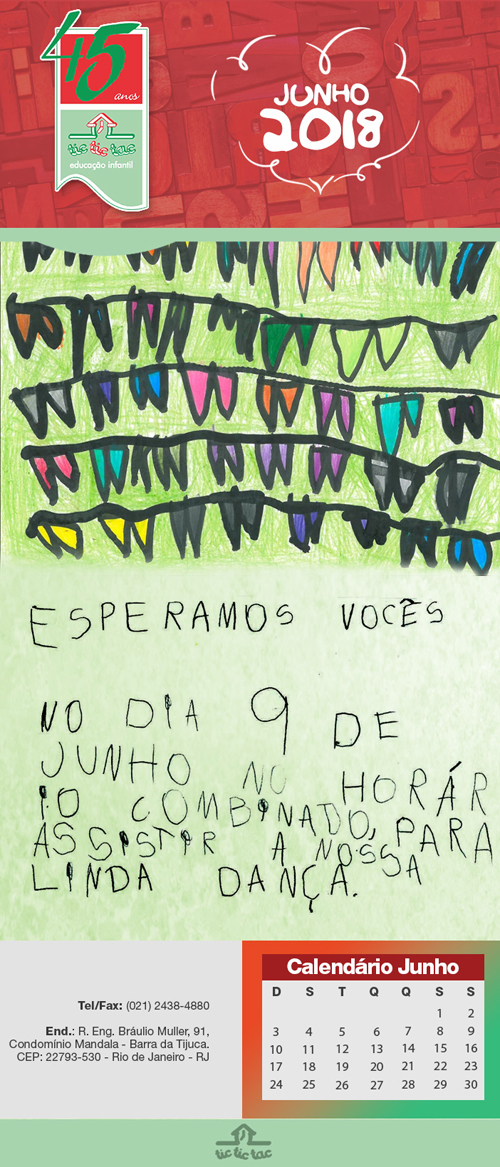 45
anos
tic tic tac
educação infantil
JUNHO
2018
ESPERAMOS VOCÊS
NO DIA 9 DE
JUNHO NO HORÁR
IO COMBINADO, PARA
ASSISTIR A NOSSA
LINDA DANÇA.
Tel/Fax: (021) 2438-4880
End.: R. Eng. Bráulio Muller, 91,
Condomínio Mandala - Barra da Tijuca.
CEP: 22793-530 - Rio de Janeiro - RJ
Calendário Junho
D S T Q Q S S
1 2
3 4 5 6 7 8 9
10 11 12 13 14 15 16
17 18 19 20 21 22 23
24 25 26 27 28 29 30
tic tic tac